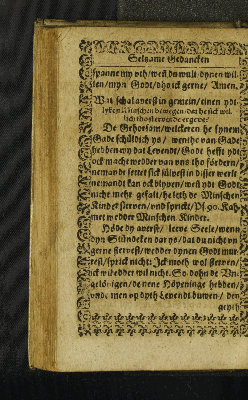 Selzame Gedancken
spanne my vth / wen du wult dynen wil-
len / myn Godt / dho ick gerne / Amen.
Wat schal auerst in gemein / einen ydt-
lyken Minschen bewegen dat he sick wil-
lich tho sterven de ergeve?
De Gehorsam / welckeren he synem
Gade schüldich ys / wente he van Gade
hebben wy dat Levendt / Godt hefft ydt
ock macht wedder van vns tho fördern /
nemandt settet sick sülvest in disser werlt
nemandt kan ock blyven / wen ydt Godt
nicht mehr gefalt / he leth de Minschen
Kinder sterven / vnd sprickt / Ps. 90. Kamet
wedder Minschen Kinder.
Höde dy averst / leeve Seele / wenn
dyn Stündeken dar ys / dat du nicht vn-
gerne stervest / wedder dynen Godt mur-
rest / sprick nicht: Ick moth wol sterven /
ick wil edder wil nicht. So dohn de Vn-
gelövigen / de nene Höpeninge hebben /
vnde men vp dyth Levendt buwen / den
geyth